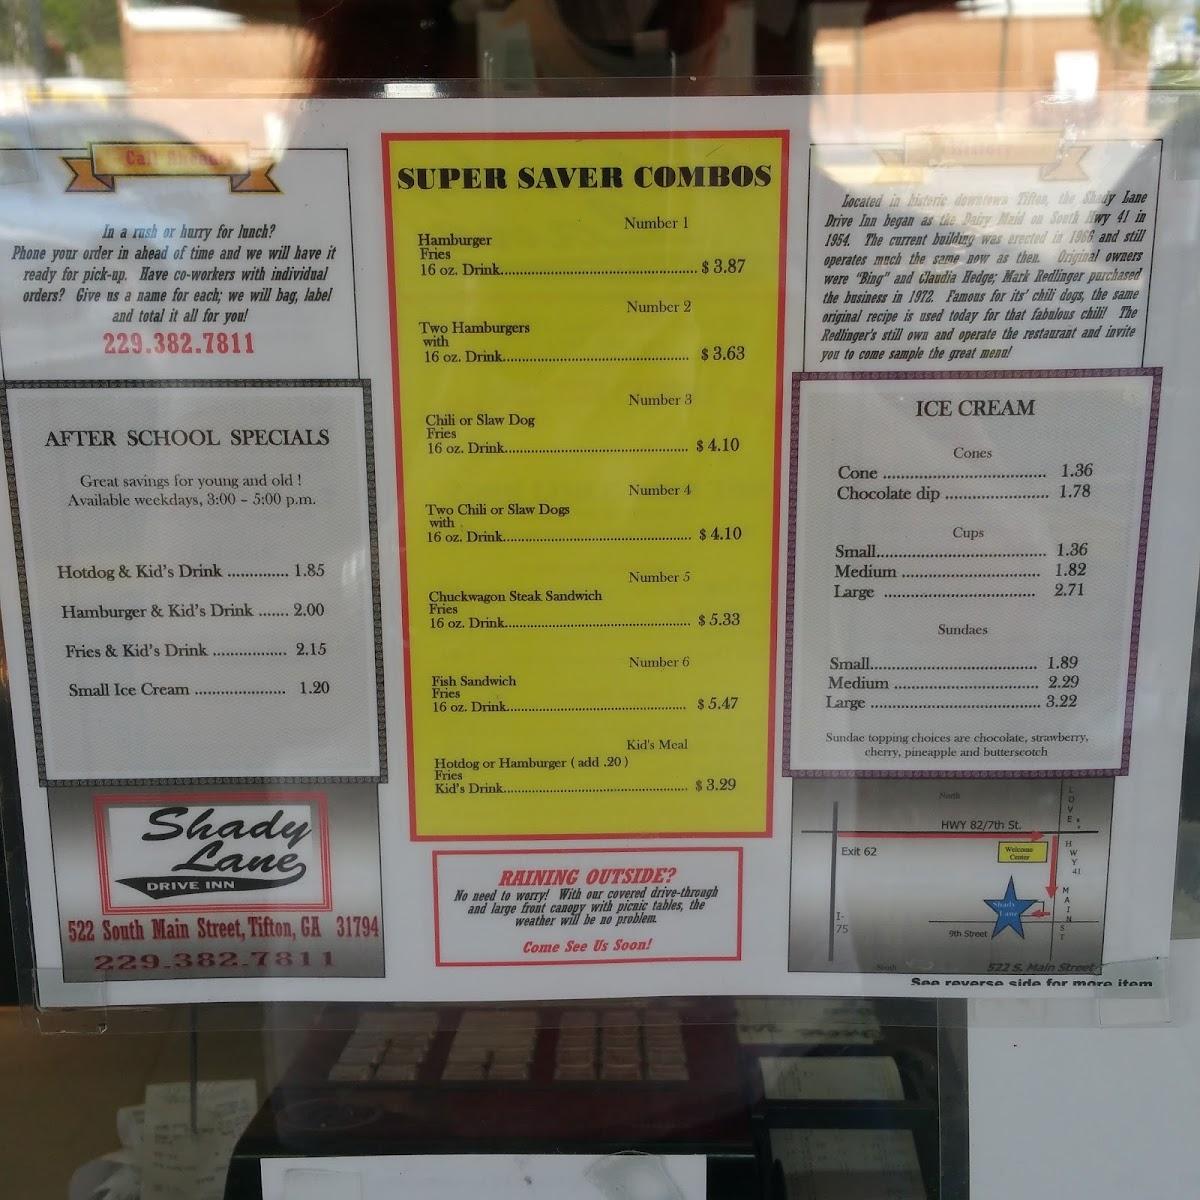 Call Ahead!
In a rush or hurry for lunch?
Phone your order in ahead of time and we will have it
ready for pick-up. Have co-workers with individual
orders? Give us a name for each; we will bag, label
and total it all for you!
229.382.7811
AFTER SCHOOL SPECIALS
Great savings for young and old !
Available weekdays, 3:00 – 5:00 p.m.
Hotdog & Kid's Drink ............. 1.85
Hamburger & Kid's Drink ....... 2.00
Fries & Kid's Drink ................. 2.15
Small Ice Cream ..................... 1.20
Shady
Lane
DRIVE INN
522 South Main Street, Tifton, GA 31794
229.382.7811
SUPER SAVER COMBOS
Number 1
Hamburger
Fries
16 oz. Drink................................................ $ 3.87
Number 2
Two Hamburgers
with
16 oz. Drink............................................. $ 3.63
Number 3
Chili or Slaw Dog
Fries
16 oz. Drink............................................. $ 4.10
Number 4
Two Chili or Slaw Dogs
with
16 oz. Drink............................................. $ 4.10
Number 5
Chuckwagon Steak Sandwich
Fries
16 oz. Drink............................................. $ 5.33
Number 6
Fish Sandwich
Fries
16 oz. Drink............................................ $ 5.47
Kid's Meal
Hotdog or Hamburger ( add .20 )
Fries
Kid's Drink............................................. $ 3.29
RAINING OUTSIDE?
No need to worry! With our covered drive-through
and large front canopy with picnic tables, the
weather will be no problem.
Come See Us Soon!
History
Located in historic downtown Tifton, the Shady Lane
Drive Inn began as the Dairy Maid on South Hwy 41 in
1954. The current building was erected in 1966 and still
operates much the same now as then. Original owners
were "Bing" and Claudia Hedge; Mark Redlinger purchased
the business in 1972. Famous for its' chili dogs, the same
original recipe is used today for that fabulous chili! The
Redlinger's still own and operate the restaurant and invite
you to come sample the great menu!
ICE CREAM
Cones
Cone .......................................... 1.36
Chocolate dip ......................... 1.78
Cups
Small.......................................... 1.36
Medium .................................... 1.82
Large ..................................... 2.71
Sundaes
Small......................................... 1.89
Medium .................................... 2.29
Large .......................................... 3.22
Sundae topping choices are chocolate, strawberry,
cherry, pineapple and butterscotch
North
LOVE
HWY 82/7th St.
Exit 62
Welcome
Center
HWY 41
Shady
Lane
MAIN ST
I-
75
9th Street
522 S. Main Street
See reverse side for more item